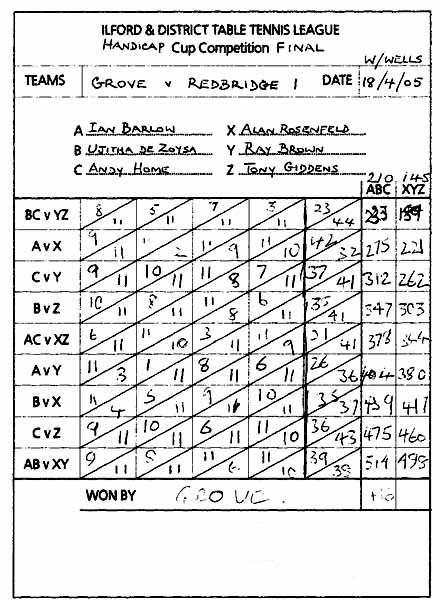 ILFORD & DISTRICT TABLE TENNIS LEAGUE
HANDICAP Cup Competition FINAL
W/WELLS
TEAMS GROVE V REDBRIDGE 1 DATE 18/4/05
A IAN BARLOW X ALAN ROSENFELD
B UJITHA DE ZOYSA Y RAY BROWN
C ANDY HOME Z TONY GIDDENS
210 145
ABC XYZ
BC v YZ 8 11 5 11 7 11 3 11 23 44 233 189
A v X 9 11 11 2 11 9 11 10 42 32 275 221
C v Y 9 11 10 11 11 8 7 11 37 41 312 262
B v Z 10 11 8 11 11 8 6 11 35 41 347 303
AC v XZ 6 11 11 10 3 11 11 9 31 41 378 344
A v Y 11 3 1 11 8 11 6 11 26 36 404 380
B v X 11 4 5 11 9 11 10 11 35 37 439 417
C v Z 9 11 10 11 6 11 11 10 36 43 475 460
AB v XY 9 11 8 11 11 6 11 10 39 38 514 498
WON BY GROVE. +16